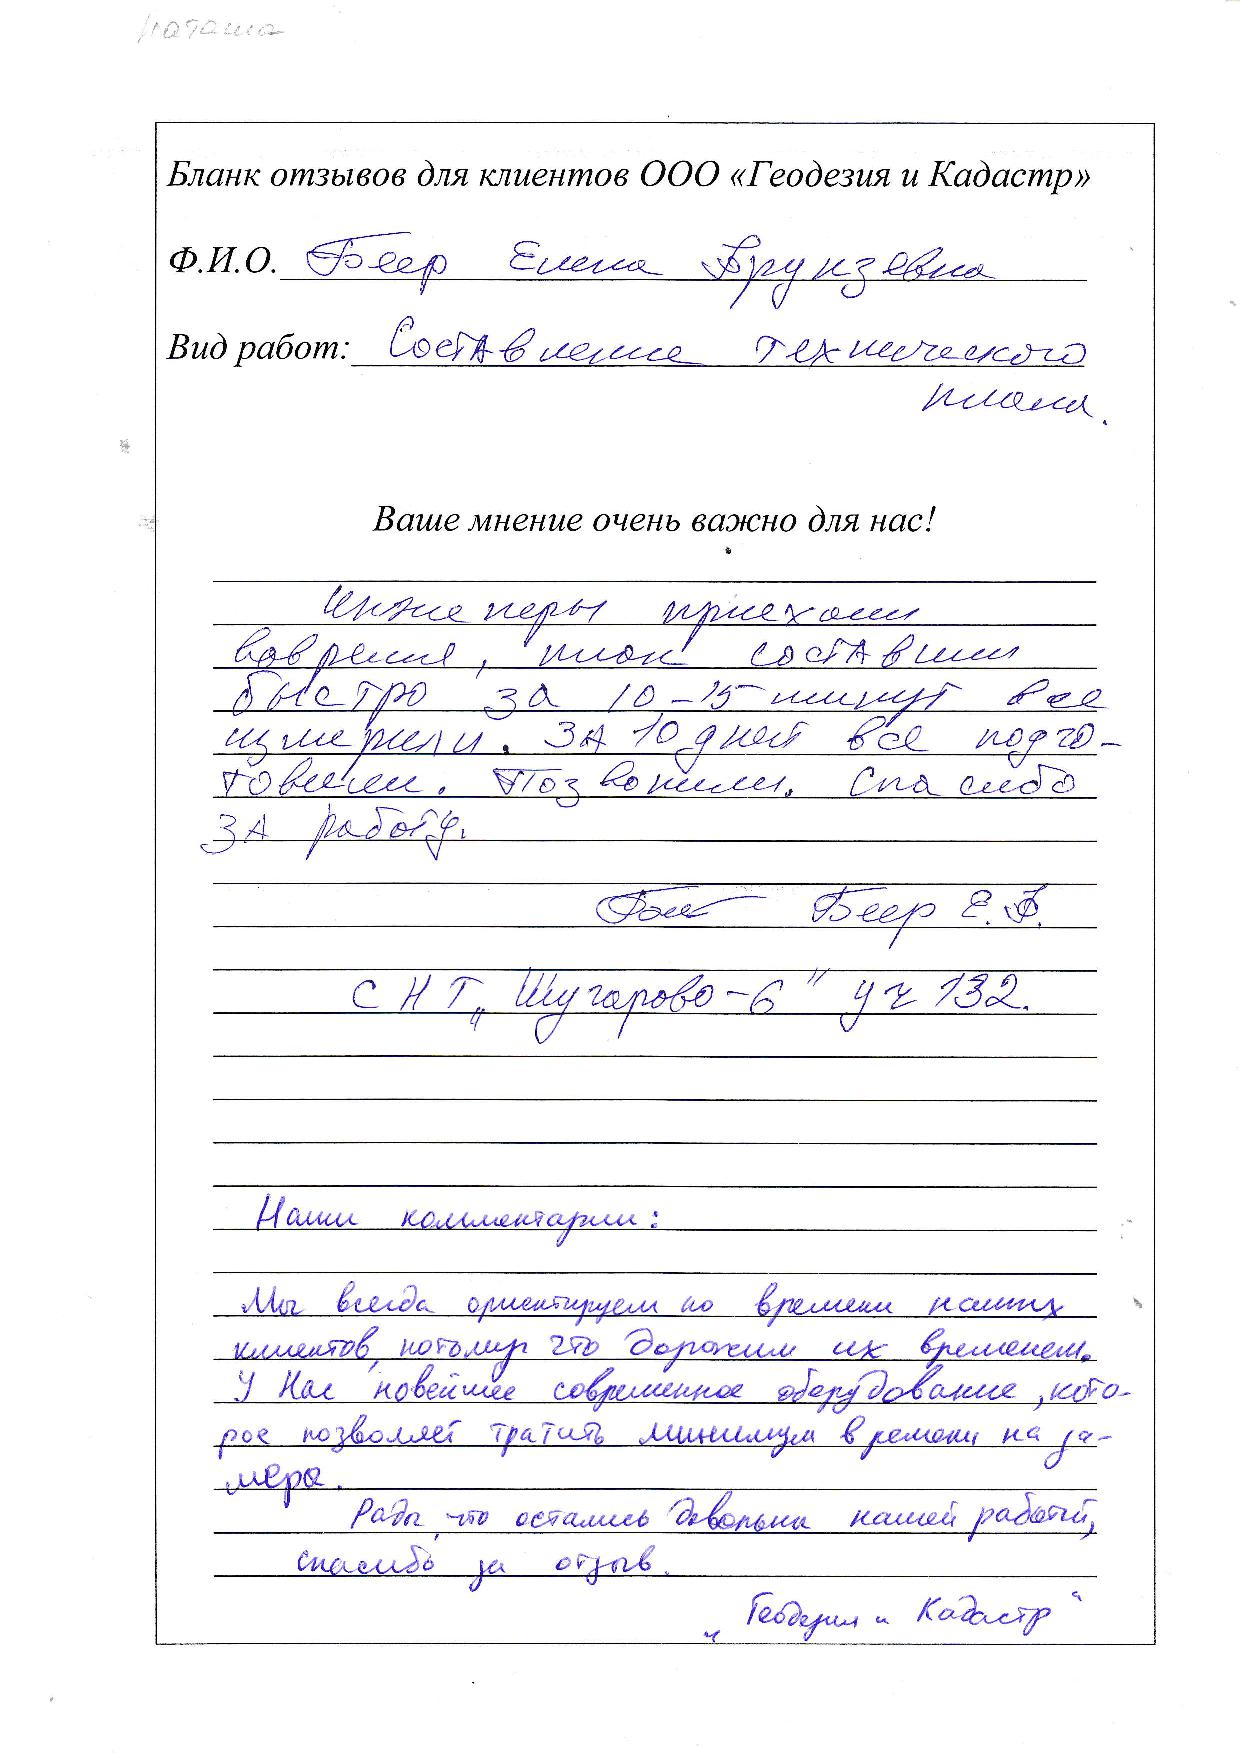 Наташа
Бланк отзывов для клиентов ООО «Геодезия и Кадастр»
Ф.И.О. Беер Елена Брунзевна
Вид работ: Составление технического
плана.
Ваше мнение очень важно для нас!
Инженеры приехали
вовремя, план составили
быстро за 10-15 минут все
измерили. За 10 дней все подго-
товили. Позвонили. Спасибо
за работу.
Беер Е.Б.
СНТ „Шугарово-6" уч 132.
Наши комментарии:
Мы всегда ориентируем по времени наших
клиентов, потому что дорожим их временем.
У Нас новейшее современное оборудование, кото-
рое позволяет тратить минимум времени на за-
мера.
Рады, что остались довольны нашей работой,
спасибо за отзыв.
„Геодезия и Кадастр"